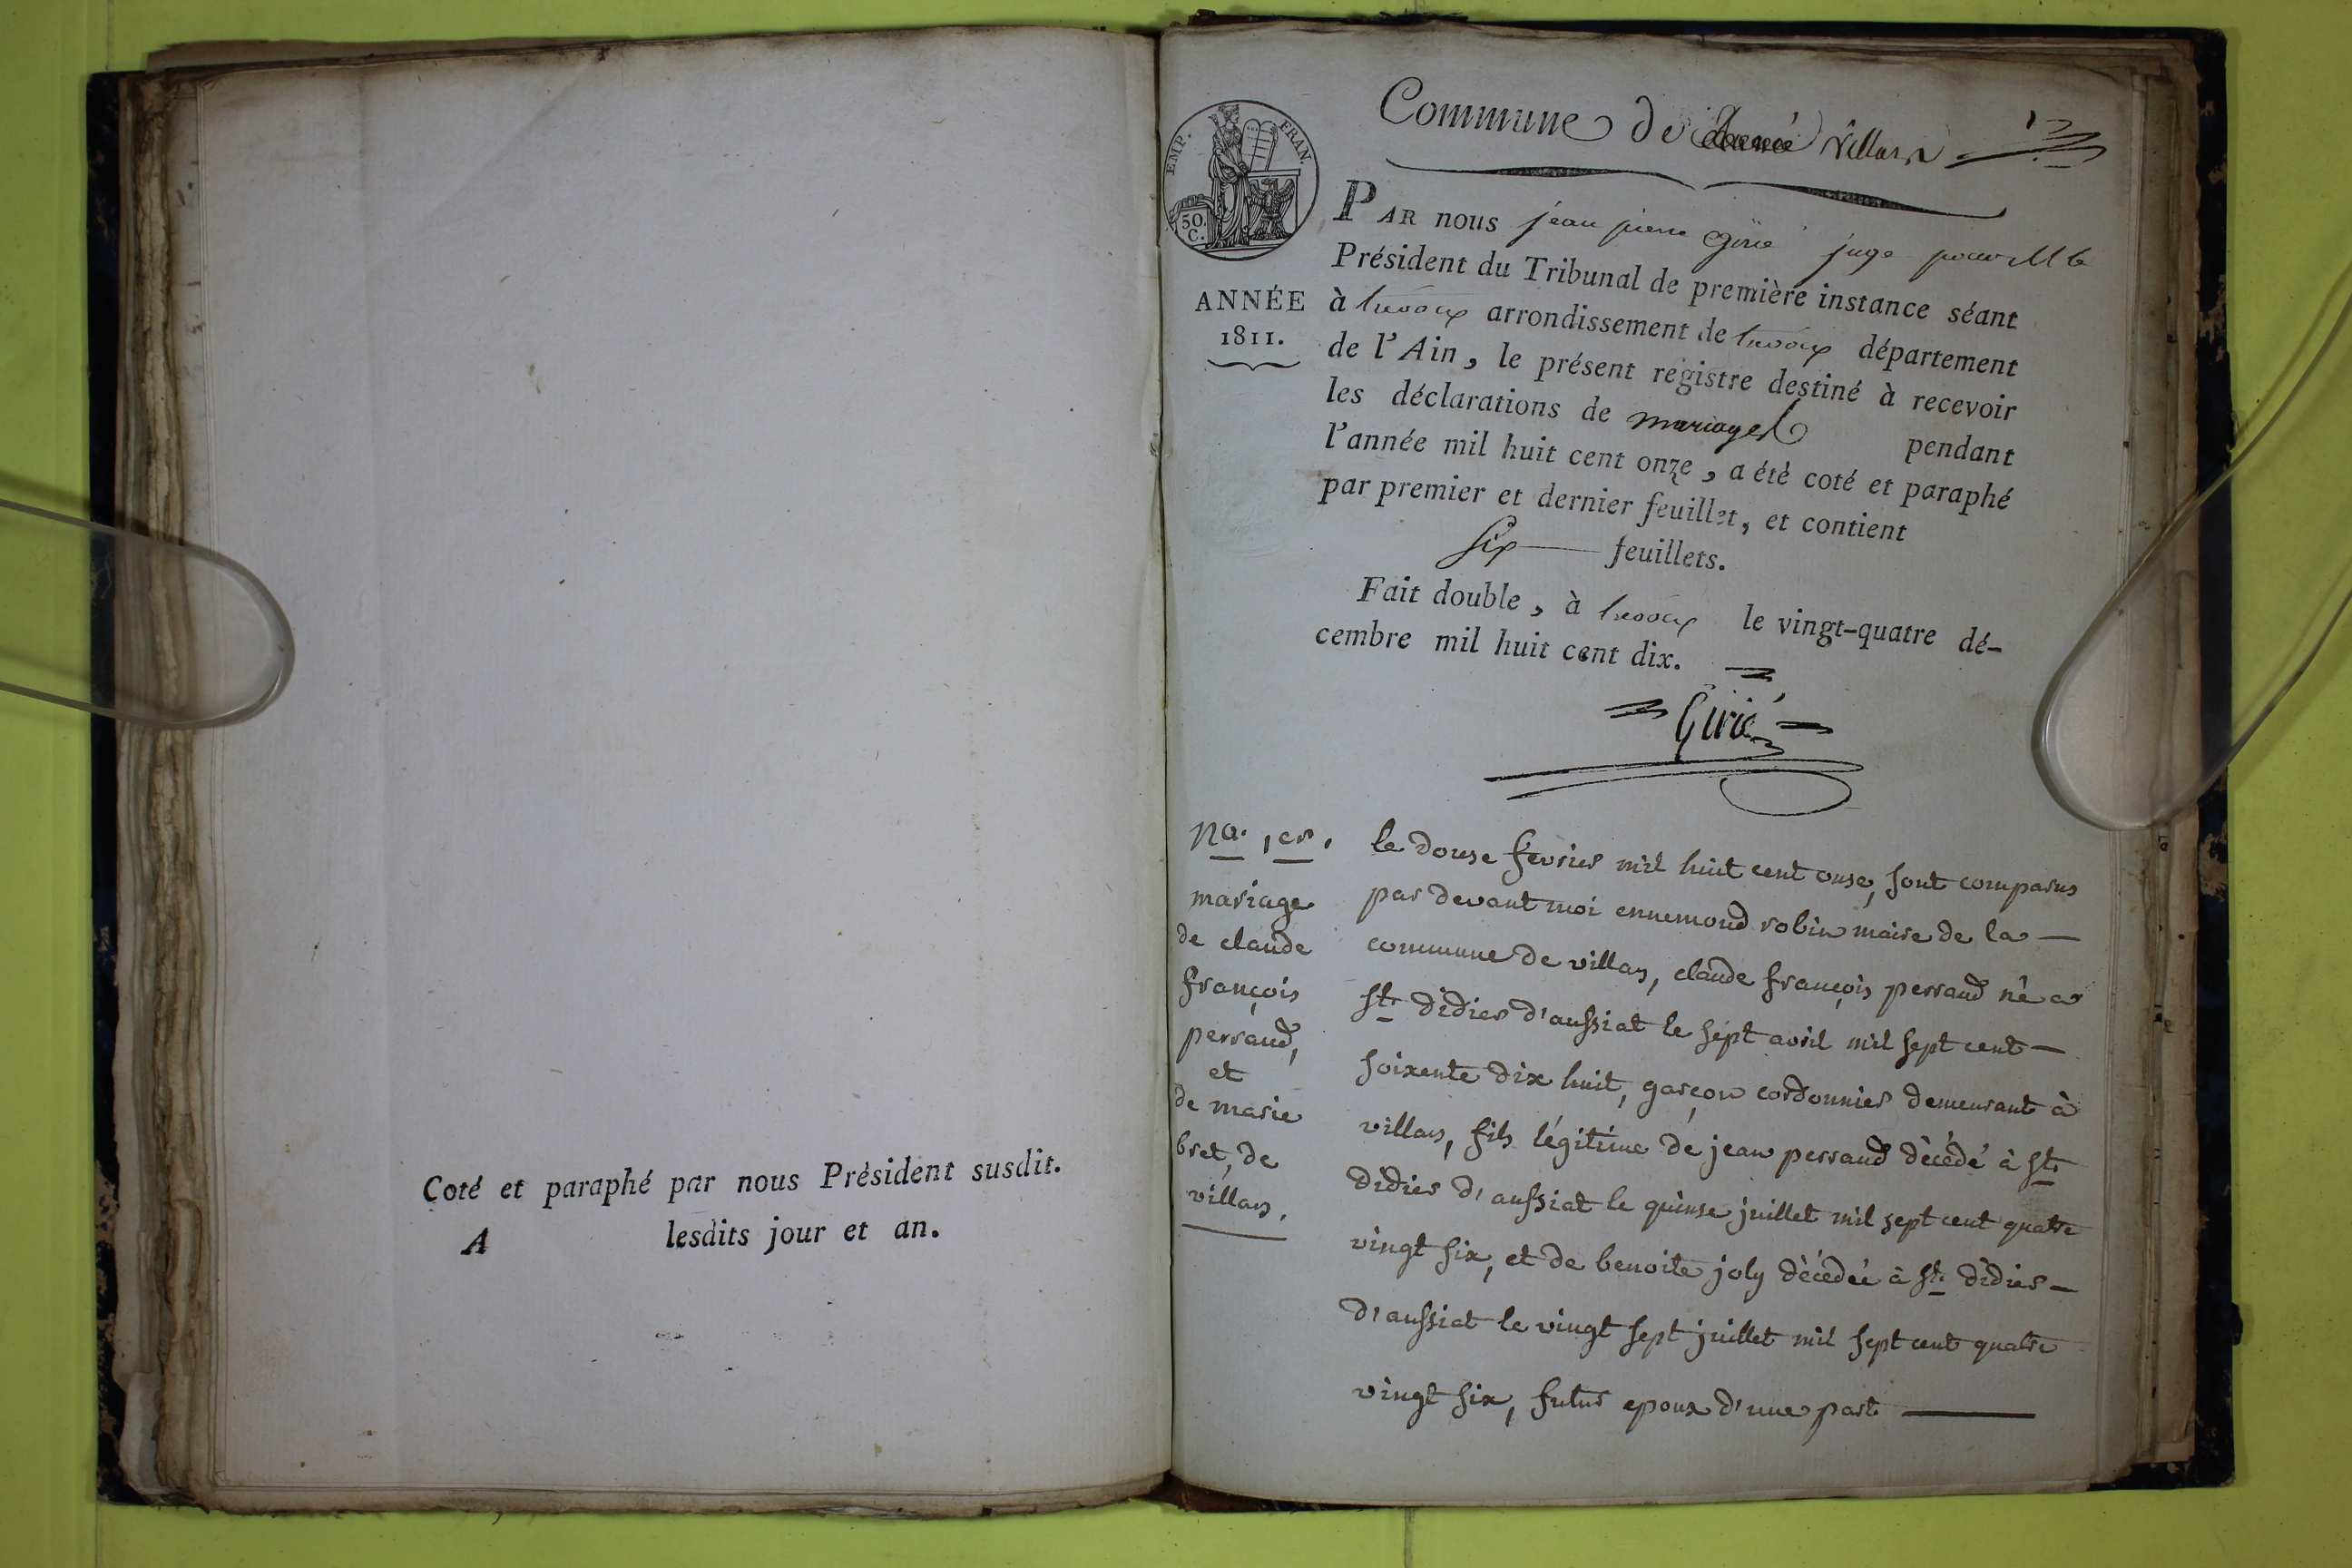 Coté et paraphé par nous Président susdit.
A lesdits jour et an.
Commune de villars
EMP. FRAN.
50
C.
ANNÉE
1811.
PAR nous jean pierre Girié juge pour Mr le
Président du Tribunal de première instance séant
à trevoux arrondissement de trevoux département
de l'Ain, le présent registre destiné à recevoir
les déclarations de mariages pendant
l'année mil huit cent onze, a été coté et paraphé
par premier et dernier feuillet, et contient
six feuillets.
Fait double, à trevoux le vingt-quatre dé-
cembre mil huit cent dix.
Girié
no. 1er.
mariage
de claude
françois
perraud,
et
de marie
bret, de
villars,
le douse fevrier mil huit cent onse, sont comparus
par devant moi ennemond robin maire de la
commune de villars, claude françois perraud né a
st didier d'aussiat le sept avril mil sept cent
soixente dix huit, garçon cordonnier demeurant à
villars, fils légitime de jean perraud décédé à st
didier d'aussiat le quinse juillet mil sept cent quatre
vingt six, et de benoite joly décédée à st didier
d'aussiat le vingt sept juillet mil sept cent quatre
vingt six, futur epoux d'une part